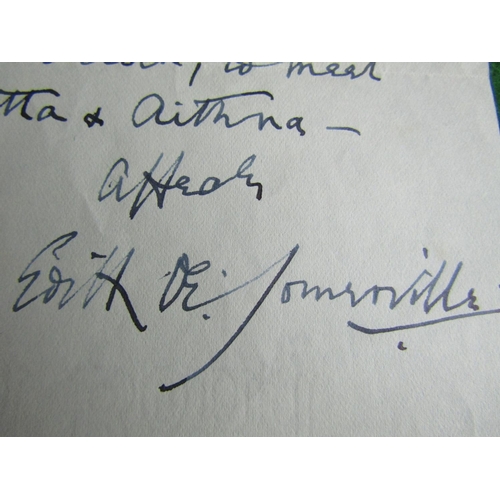 to meet
tta & Aithna —
Affecly
Edith Œ. Somerville.